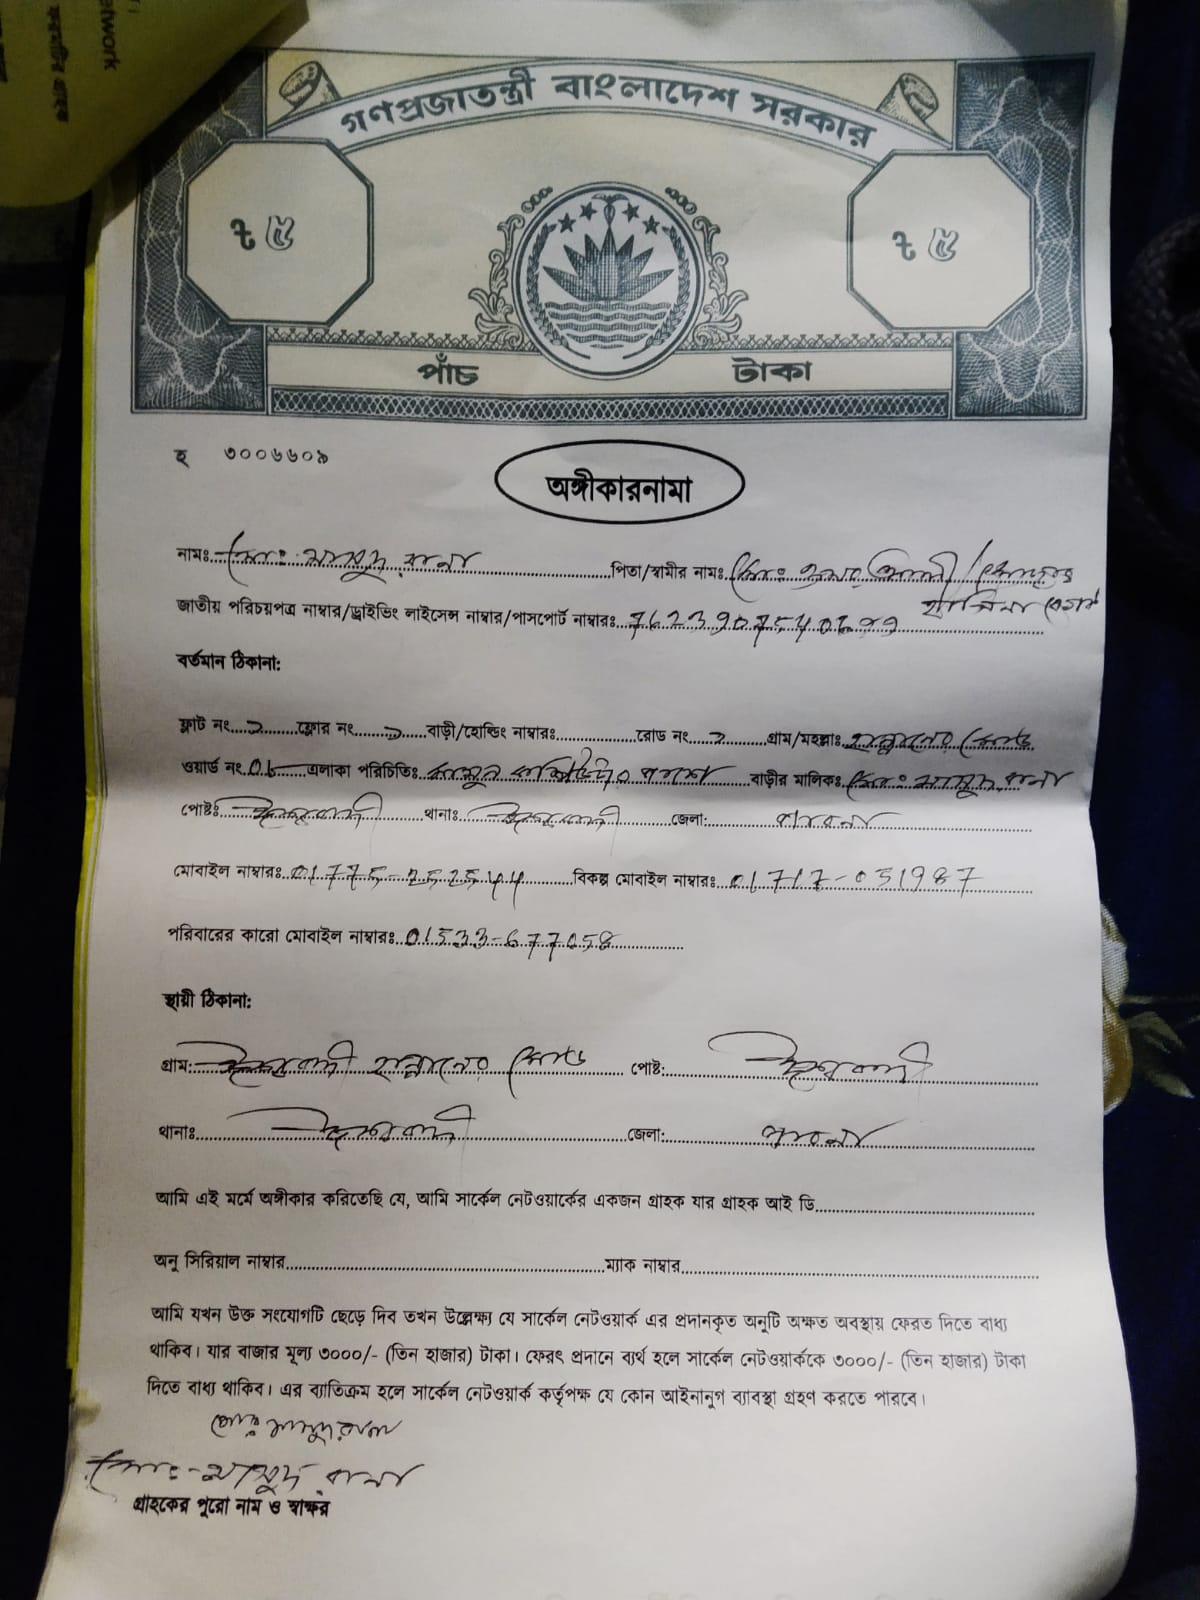 network
গণপ্রজাতন্ত্রী বাংলাদেশ সরকার
৳ ৫ ৳ ৫
পাঁচ টাকা
হ ৩০০৬৬০৯
অঙ্গীকারনামা
নামঃ মোঃ মাসুদ রানা পিতা/স্বামীর নামঃ মোঃ
জাতীয় পরিচয়পত্র নাম্বার/ড্রাইভিং লাইসেন্স নাম্বার/পাসপোর্ট নাম্বারঃ
বর্তমান ঠিকানা:
ফ্লাট নং ফ্লোর নং বাড়ী/হোল্ডিং নাম্বারঃ রোড নং গ্রাম/মহল্লাঃ
ওয়ার্ড নং 06 এলাকা পরিচিতিঃ বাড়ীর মালিকঃ মোঃ মাসুদ রানা
পোষ্টঃ ঈশ্বরদী থানাঃ ঈশ্বরদী জেলা: পাবনা
মোবাইল নাম্বারঃ 01775-252544 বিকল্প মোবাইল নাম্বারঃ 01717-051987
পরিবারের কারো মোবাইল নাম্বারঃ 01533-677058
স্থায়ী ঠিকানা:
গ্রাম: ঈশ্বরদী পোষ্ট: ঈশ্বরদী
থানাঃ ঈশ্বরদী জেলা: পাবনা
আমি এই মর্মে অঙ্গীকার করিতেছি যে, আমি সার্কেল নেটওয়ার্কের একজন গ্রাহক যার গ্রাহক আই ডি
অনু সিরিয়াল নাম্বার ম্যাক নাম্বার
আমি যখন উক্ত সংযোগটি ছেড়ে দিব তখন উল্লেক্ষ্য যে সার্কেল নেটওয়ার্ক এর প্রদানকৃত অনুটি অক্ষত অবস্থায় ফেরত দিতে বাধ্য
থাকিব। যার বাজার মূল্য ৩০০০/- (তিন হাজার) টাকা। ফেরৎ প্রদানে ব্যর্থ হলে সার্কেল নেটওয়ার্ককে ৩০০০/- (তিন হাজার) টাকা
দিতে বাধ্য থাকিব। এর ব্যতিক্রম হলে সার্কেল নেটওয়ার্ক কর্তৃপক্ষ যে কোন আইনানুগ ব্যাবস্থা গ্রহণ করতে পারবে।
মোঃ মাসুদ রানা
মোঃ মাসুদ রানা
গ্রাহকের পুরো নাম ও স্বাক্ষর